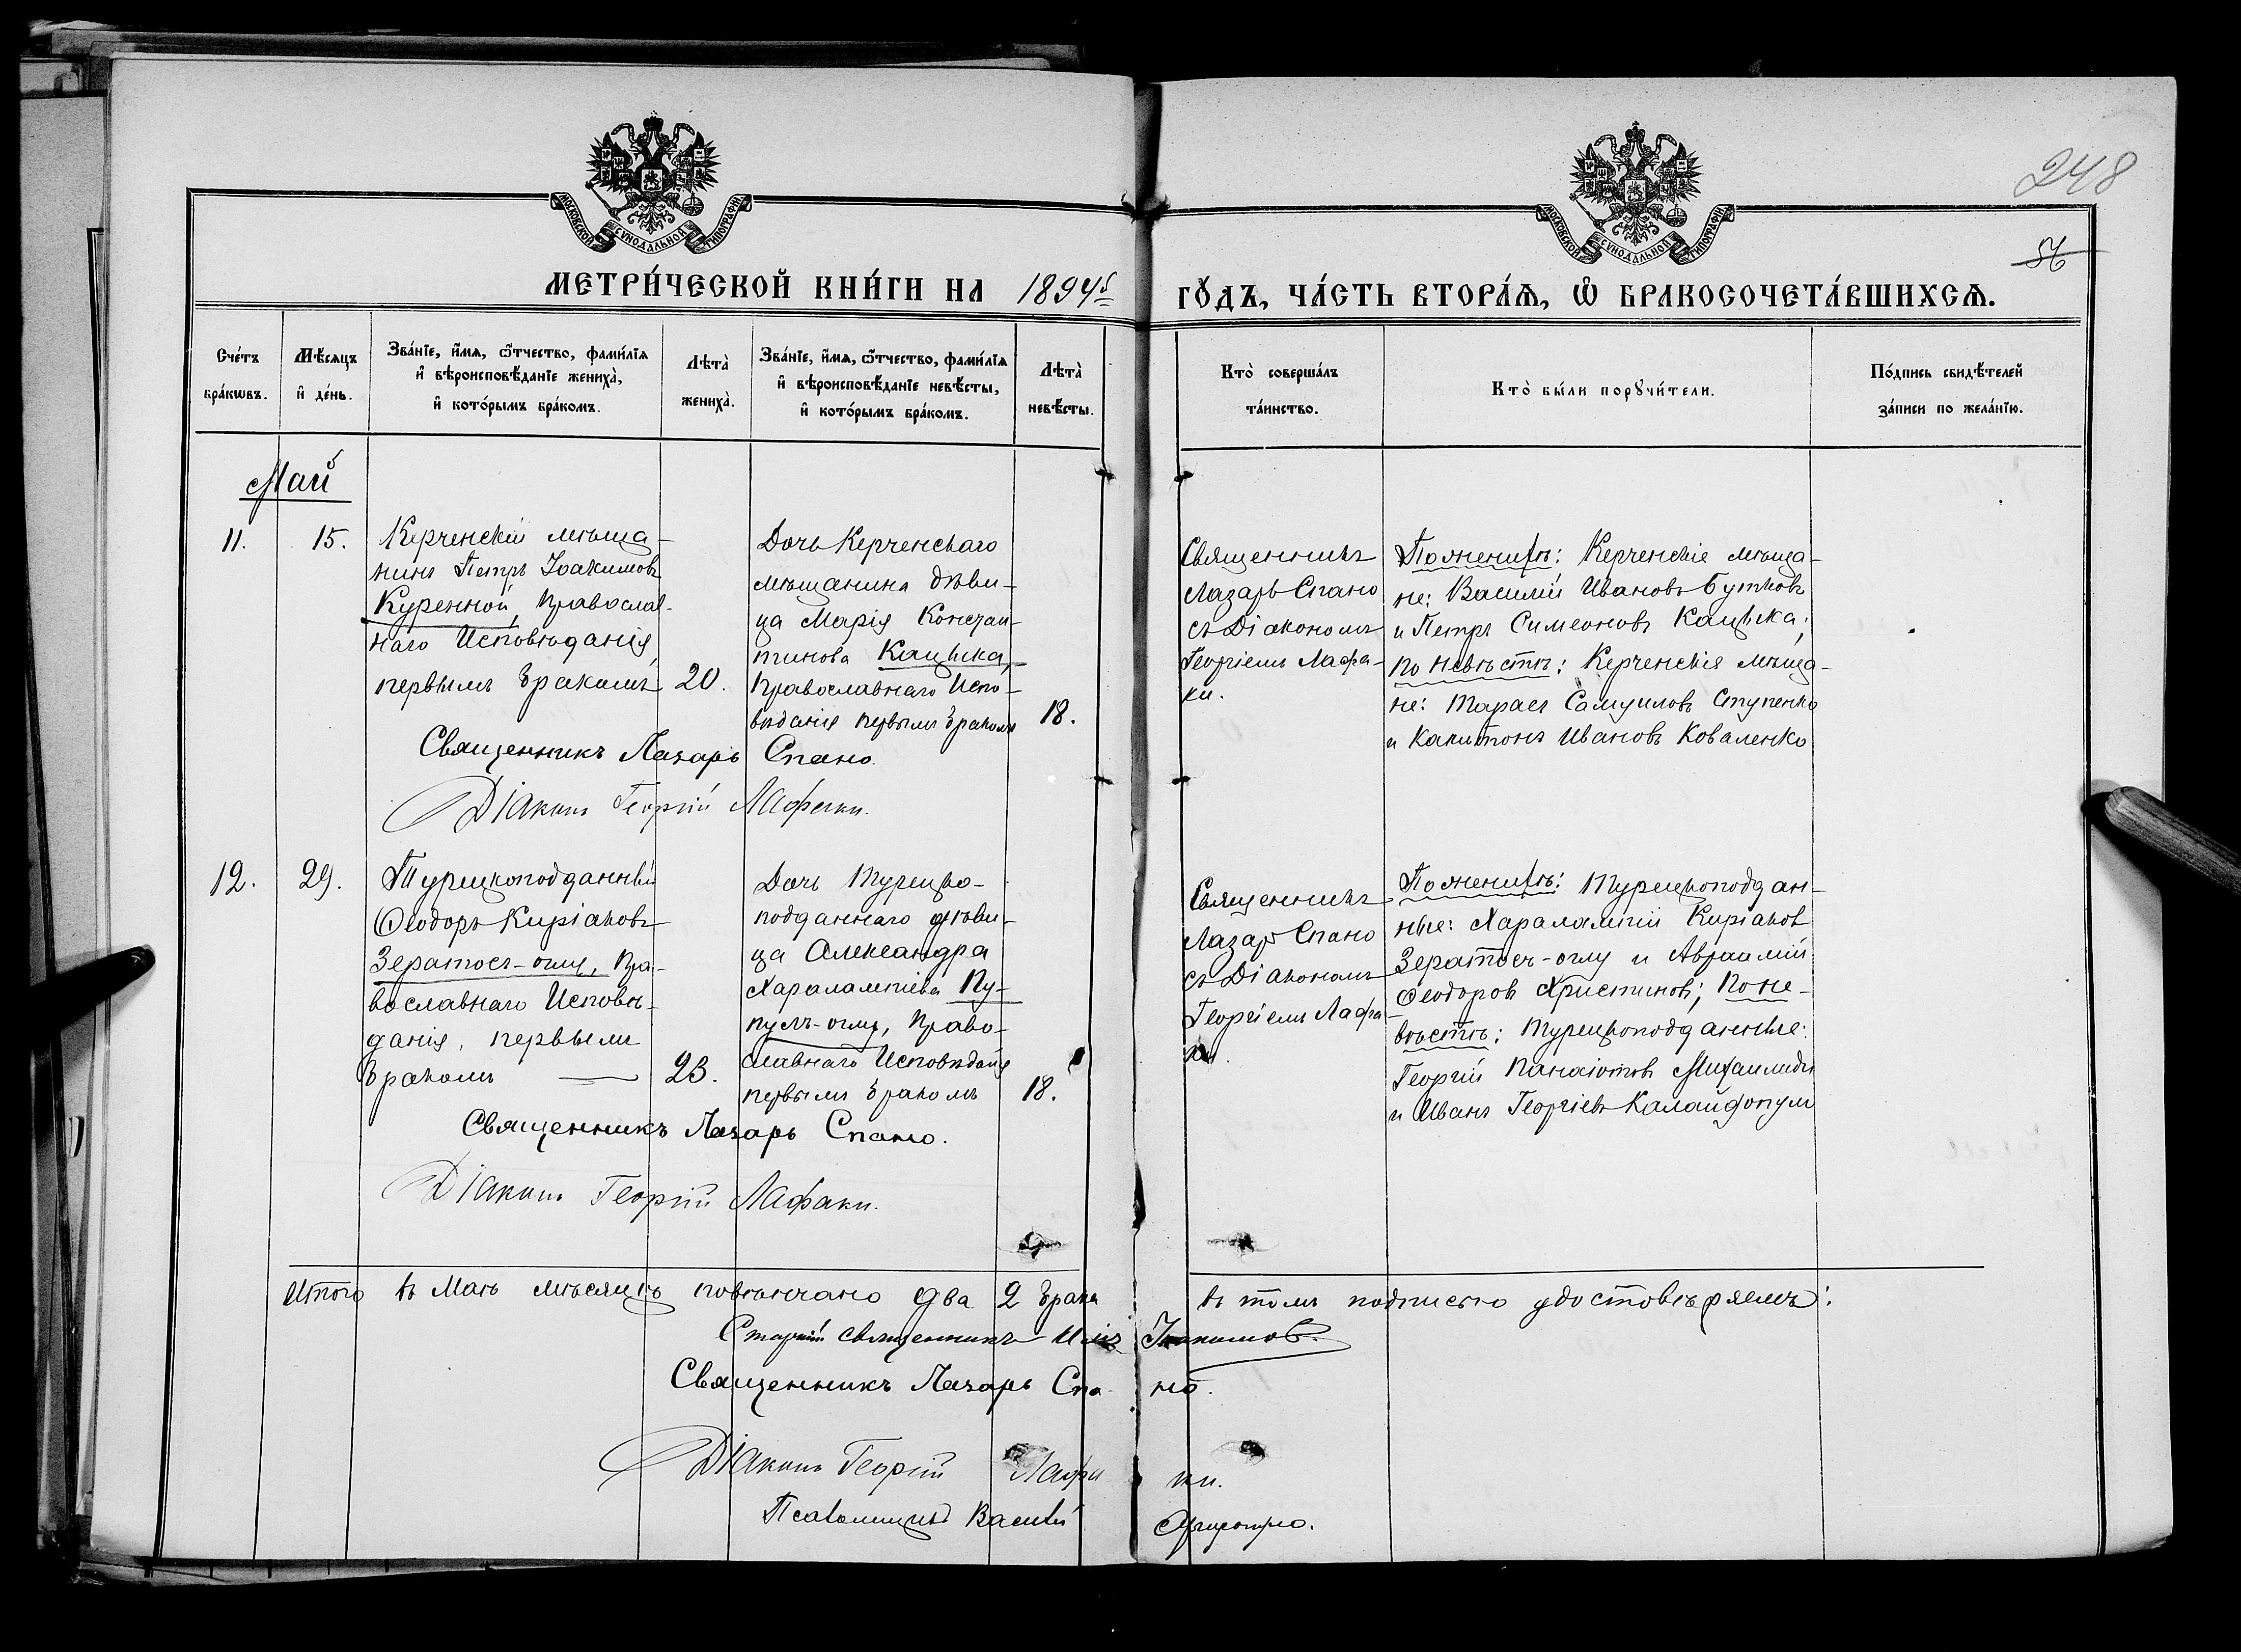 МОСКОВСКОЙ СѴНОДАЛЬНОЙ ТИПОГРАФІИ
МОСКОВСКОЙ СѴНОДАЛЬНОЙ ТИПОГРАФІИ
248
56
МЕТРИ́ЧЕСКОЙ КНИ́ГИ НА 1894й
ГО́ДЪ, ЧА́СТЬ ВТОРА́Ѧ, Ѽ БРАКОСОЧЕТА́ВШИХСѦ.
Сче́тъ
бра́кѡвъ.
Мѣ́сѧцъ
и҆ де́нь.
Зва́нїе, и҆́мѧ, ѻ҆́тчество, фами́лїѧ
и҆ вѣроисповѣ́данїе жениха̀,
и҆ кото́рымъ бра́комъ.
Лѣта̀
жениха̀.
Зва́нїе, и҆́мѧ, ѻ҆́тчество, фами́лїѧ
и҆ вѣроисповѣ́данїе невѣ́сты,
и҆ кото́рымъ бра́комъ.
Лѣта̀
невѣ́сты.
Кто̀ соверша́лъ
та́инство.
Кто̀ бы́ли порꙋчи́тели.
По́дпись свидѣ́телей
за́писи по жела́нїю.
Май
11.
15.
Керченскій мѣща-
нинъ Петръ Іоакимовъ
Куренной, Православ-
наго Исповѣданія,
первымъ бракомъ
20.
Дочь Керченскаго
мѣщанина дѣви-
ца Марія Констан-
тинова Кацыка,
Православнаго Испо-
вѣданія первымъ бракомъ
18.
Священникъ
Лазарь Спано
съ Діакономъ
Георгіемъ Лафа-
ки.
По женихѣ: Керченскіе мѣща-
не: Василій Ивановъ Бутковъ
и Петръ Симеоновъ Кацыка;
по невѣстѣ: Керченскіе мѣща-
не: Тарасъ Самуиловъ Ступенко
и Капитонъ Ивановъ Коваленко
Священникъ Лазарь Спано.
Діаконъ Георгій Лафаки.
12.
29.
Турецкоподданный
Ѳеодоръ Киріаковъ
Зератос-оглу, Пра-
вославнаго Исповѣ-
данія, первымъ
бракомъ —
23.
Дочь Турецко-
подданнаго дѣви-
ца Александра
Харалампіева Пу-
пулъ-оглу, Право-
славнаго Исповѣданія
первымъ бракомъ
18.
Священникъ
Лазарь Спано
съ Діакономъ
Георгіемъ Лафа-
ки.
По женихѣ: Турецкоподдан-
ные: Харалампій Киріаковъ
Зератос-оглу и Авраамій
Ѳеодоровъ Христиновъ; По не-
вѣстѣ: Турецкоподданные:
Георгій Панаіотовъ Михаилиди
и Иванъ Георгіевъ Калайдопулъ
Священникъ Лазарь Спано.
Діаконъ Георгій Лафаки.
Итого въ Маѣ мѣсяцѣ повѣнчано два 2 брака въ томъ подписью удостовѣряемъ:
Старшій священникъ Илія Іоакимовъ.
Священникъ Лазарь Спано.
Діаконъ Георгій Лафаки.
Псаломщикъ Василій